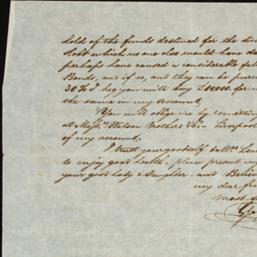 hold of the funds destined for the divi
debt which no one else would have da
perhaps have caused a considerable fall
Bonds, and if so, and they can be pur
30% I beg you will buy £10000 for
the same in my account,
You will oblige me by remitting
at Messrs Watson Brothers & Co. Liverpool
of my account.
I trust yourself & Mrs
to enjoy good health, please present my
your good lady & daughter. and Believ
my dear
most